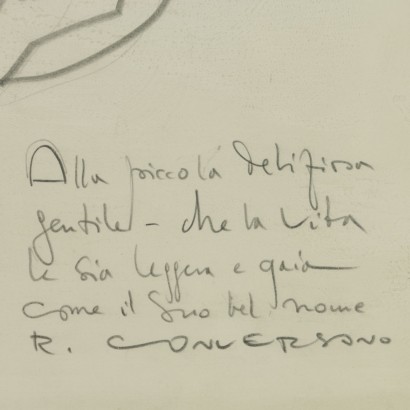 Alla piccola
gentile - che la vita
le sia leggera e gaia
come il Suo bel nome
R. CONVERSANO